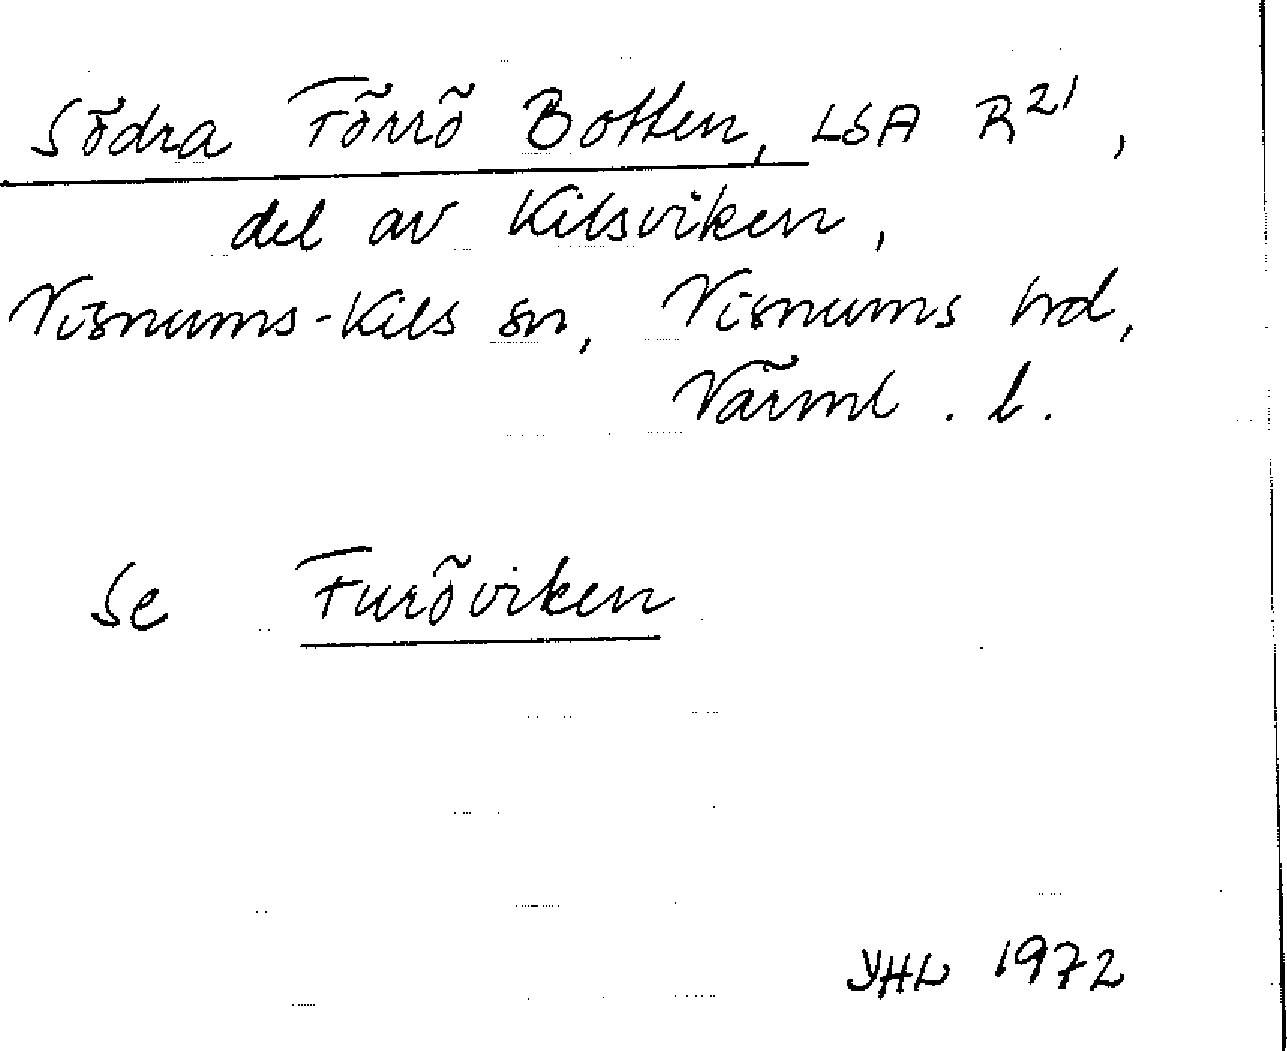 Södra Förrö Botten, LSA R21,
del av Kilsviken,
Visnums-Kils sn, Visnums hd,
Värml. l.
Se Furöviken
YHL 1972